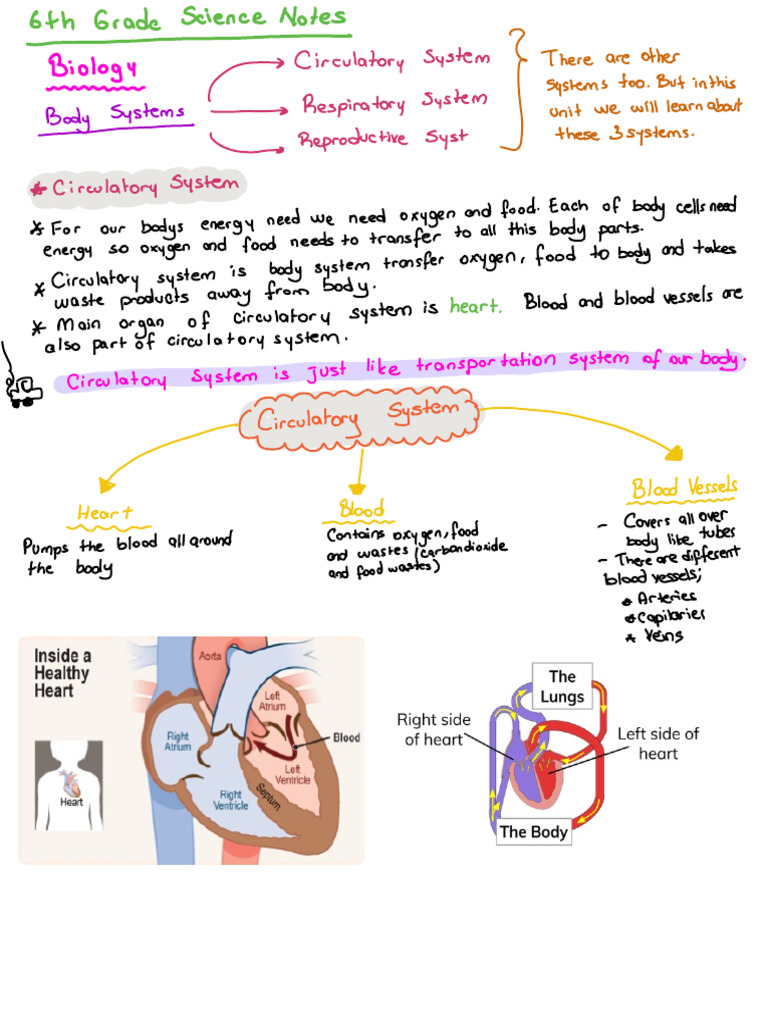 6th Grade Science Notes
Biology
Body Systems
Circulatory System
Respiratory System
Reproductive Syst
There are other
systems too. But in this
unit we will learn about
these 3 systems.
* Circulatory System
* For our bodys energy need we need oxygen and food. Each of body cells need
energy so oxygen and food needs to transfer to all this body parts.
* Circulatory system is body system transfer oxygen, food to body and takes
waste products away from body.
* Main organ of circulatory system is heart. Blood and blood vessels are
also part of circulatory system.
Circulatory System is just like transportation system of our body.
Circulatory System
Heart
Pumps the blood all around
the body
Blood
Contains oxygen, food
and wastes (carbondioxide
and food wastes)
Blood Vessels
- Covers all over
body like tubes
- There are different
blood vessels;
* Arteries
* Capilaries
* Veins
Inside a
Healthy
Heart
Heart
Aorta
Left
Atrium
Right
Atrium
Blood
Left
Ventricle
Right
Ventricle
Septum
The
Lungs
Right side
of heart
Left side of
heart
The Body